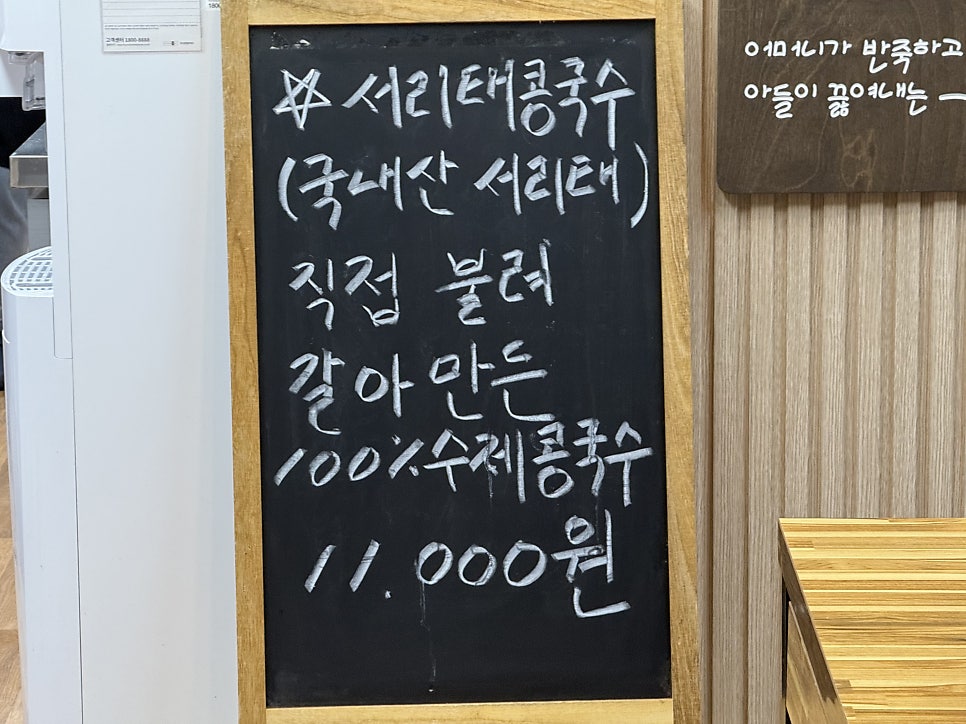 ☆ 서리태콩국수
(국내산 서리태)
직접 불려
갈아 만든
100% 수제콩국수
11.000원
어머니가 반죽하고
아들이 끓여내는
고객센터 1800-8688